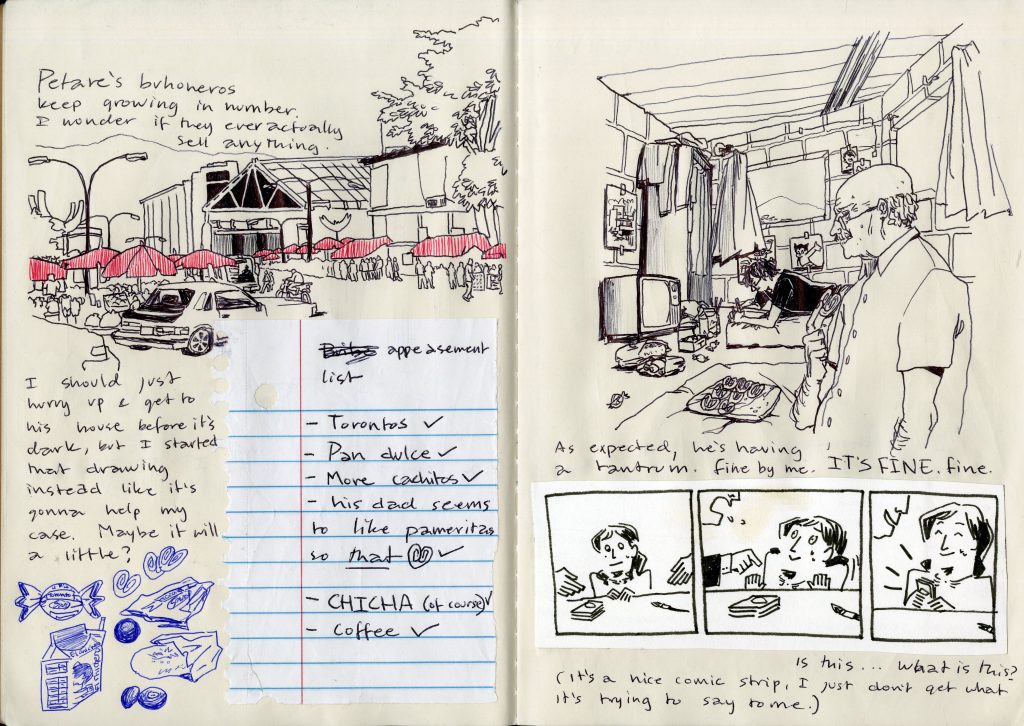 Petare's buhoneros
keep growing in number.
I wonder if they ever actually
sell anything.
I should just
hurry up & get to
his house before it's
dark, but I started
that drawing
instead like it's
gonna help my
case. Maybe it will
a little?
appeasement
list
- Torontos ✓
- Pan dulce ✓
- More cachitos ✓
- his dad seems
to like palmeritas
so that ✓
- CHICHA (of course) ✓
- Coffee ✓
As expected, he's having
a tantrum. fine by me. IT'S FINE. fine.
Is this... what is this?
(It's a nice comic strip, I just don't get what
it's trying to say to me.)